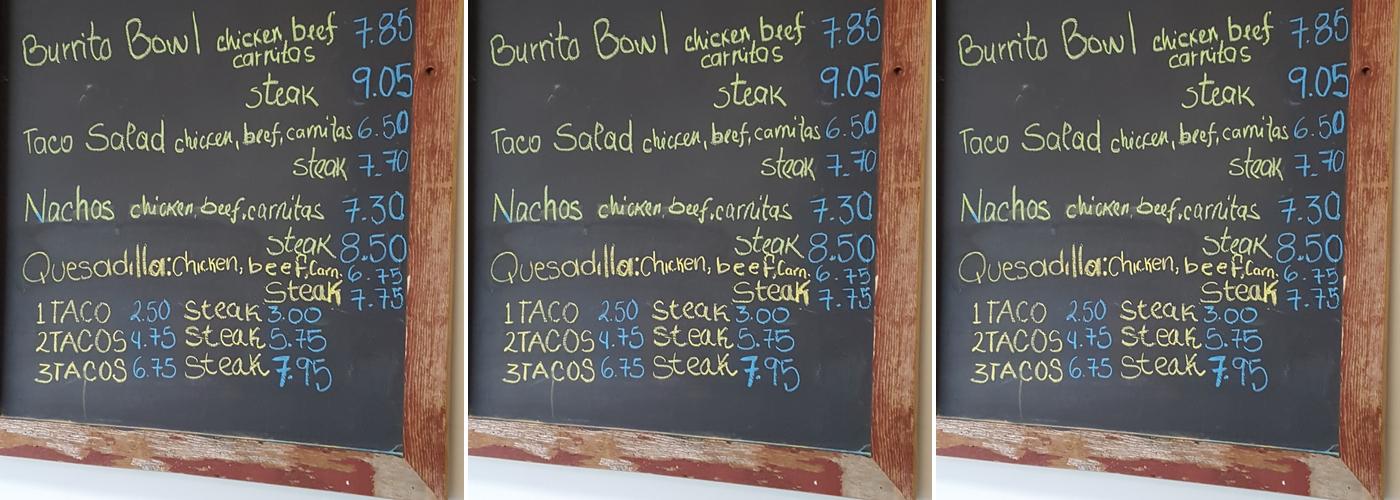 Burrito Bowl chicken, beef 7.85
carnitas
steak 9.05
Taco Salad chicken, beef, carnitas 6.50
steak 7.70
Nachos chicken, beef, carnitas 7.30
steak 8.50
Quesadilla: Chicken, beef, Carn. 6.75
Steak 7.75
1 TACO 2.50 Steak 3.00
2 TACOS 4.75 Steak 5.75
3 TACOS 6.75 Steak 7.95
Burrito Bowl chicken, beef 7.85
carnitas
steak 9.05
Taco Salad chicken, beef, carnitas 6.50
steak 7.70
Nachos chicken, beef, carnitas 7.30
steak 8.50
Quesadilla: Chicken, beef, Carn. 6.75
Steak 7.75
1 TACO 2.50 Steak 3.00
2 TACOS 4.75 Steak 5.75
3 TACOS 6.75 Steak 7.95
Burrito Bowl chicken, beef 7.85
carnitas
steak 9.05
Taco Salad chicken, beef, carnitas 6.50
steak 7.70
Nachos chicken, beef, carnitas 7.30
steak 8.50
Quesadilla: Chicken, beef, Carn. 6.75
Steak 7.75
1 TACO 2.50 Steak 3.00
2 TACOS 4.75 Steak 5.75
3 TACOS 6.75 Steak 7.95